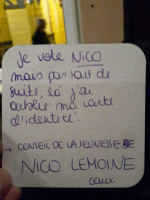 Je vote NICO
mais pas tout de
suite, là j'ai
oublié ma carte
d'identité.
→ CONSEIL DE LA JEUNESSE DE
NICO LEMOINE